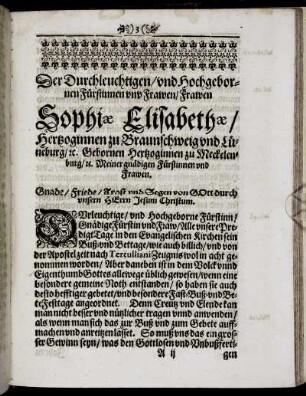 3
Der Durchleuchtigen/ vnd Hochgebor-
nen Fürstinnen vnd Frawen/ Frawen
Sophiæ Elisabethæ/
Hertzoginnen zu Braunschweig vnd Lü-
neburg/ ꝛc. Gebornen Hertzoginnen zu Meckeln-
burg/ ꝛc. Meiner gnädigen Fürstinnen vnd
Frawen.
Gnade/ Friede/ Trost vnd Segen von GOtt durch
vnsern HErrn Jesum Christum.
DVrleuchtige/ vnd Hochgeborne Fürstinn/
Gnädige Fürstin vnd Fraw/ Alle vnsere Pre-
digt Tage in den Evangelischen Kirchen sein
Buß vnd Bettage/ wie auch billich/ vnd von
der Apostel zeit nach Tertulliani Zeugnis wol in acht ge-
nommen worden/ Aber daneben ist in dem Volck vnd
Eigenthumb Gottes allewege üblich gewesen/ wenn eine
besondere gemeine Noth entstanden/ so haben sie auch
desto hefftiger gebetet/ vnd besondere Fast- Buß- vnd Be-
te Festage angeordnet. Denn Creutz vnd Elende kan
man nicht besser vnd nützlicher tragen vnnd anwenden/
als wenn man sich das zur Buß vnd zum Gebete auff-
machen vnd anreitzen lässet. So muß vns das ein gros-
ser Gewinn seyn/ was den Gottlosen vnd Vnbußferti-
A ij gen